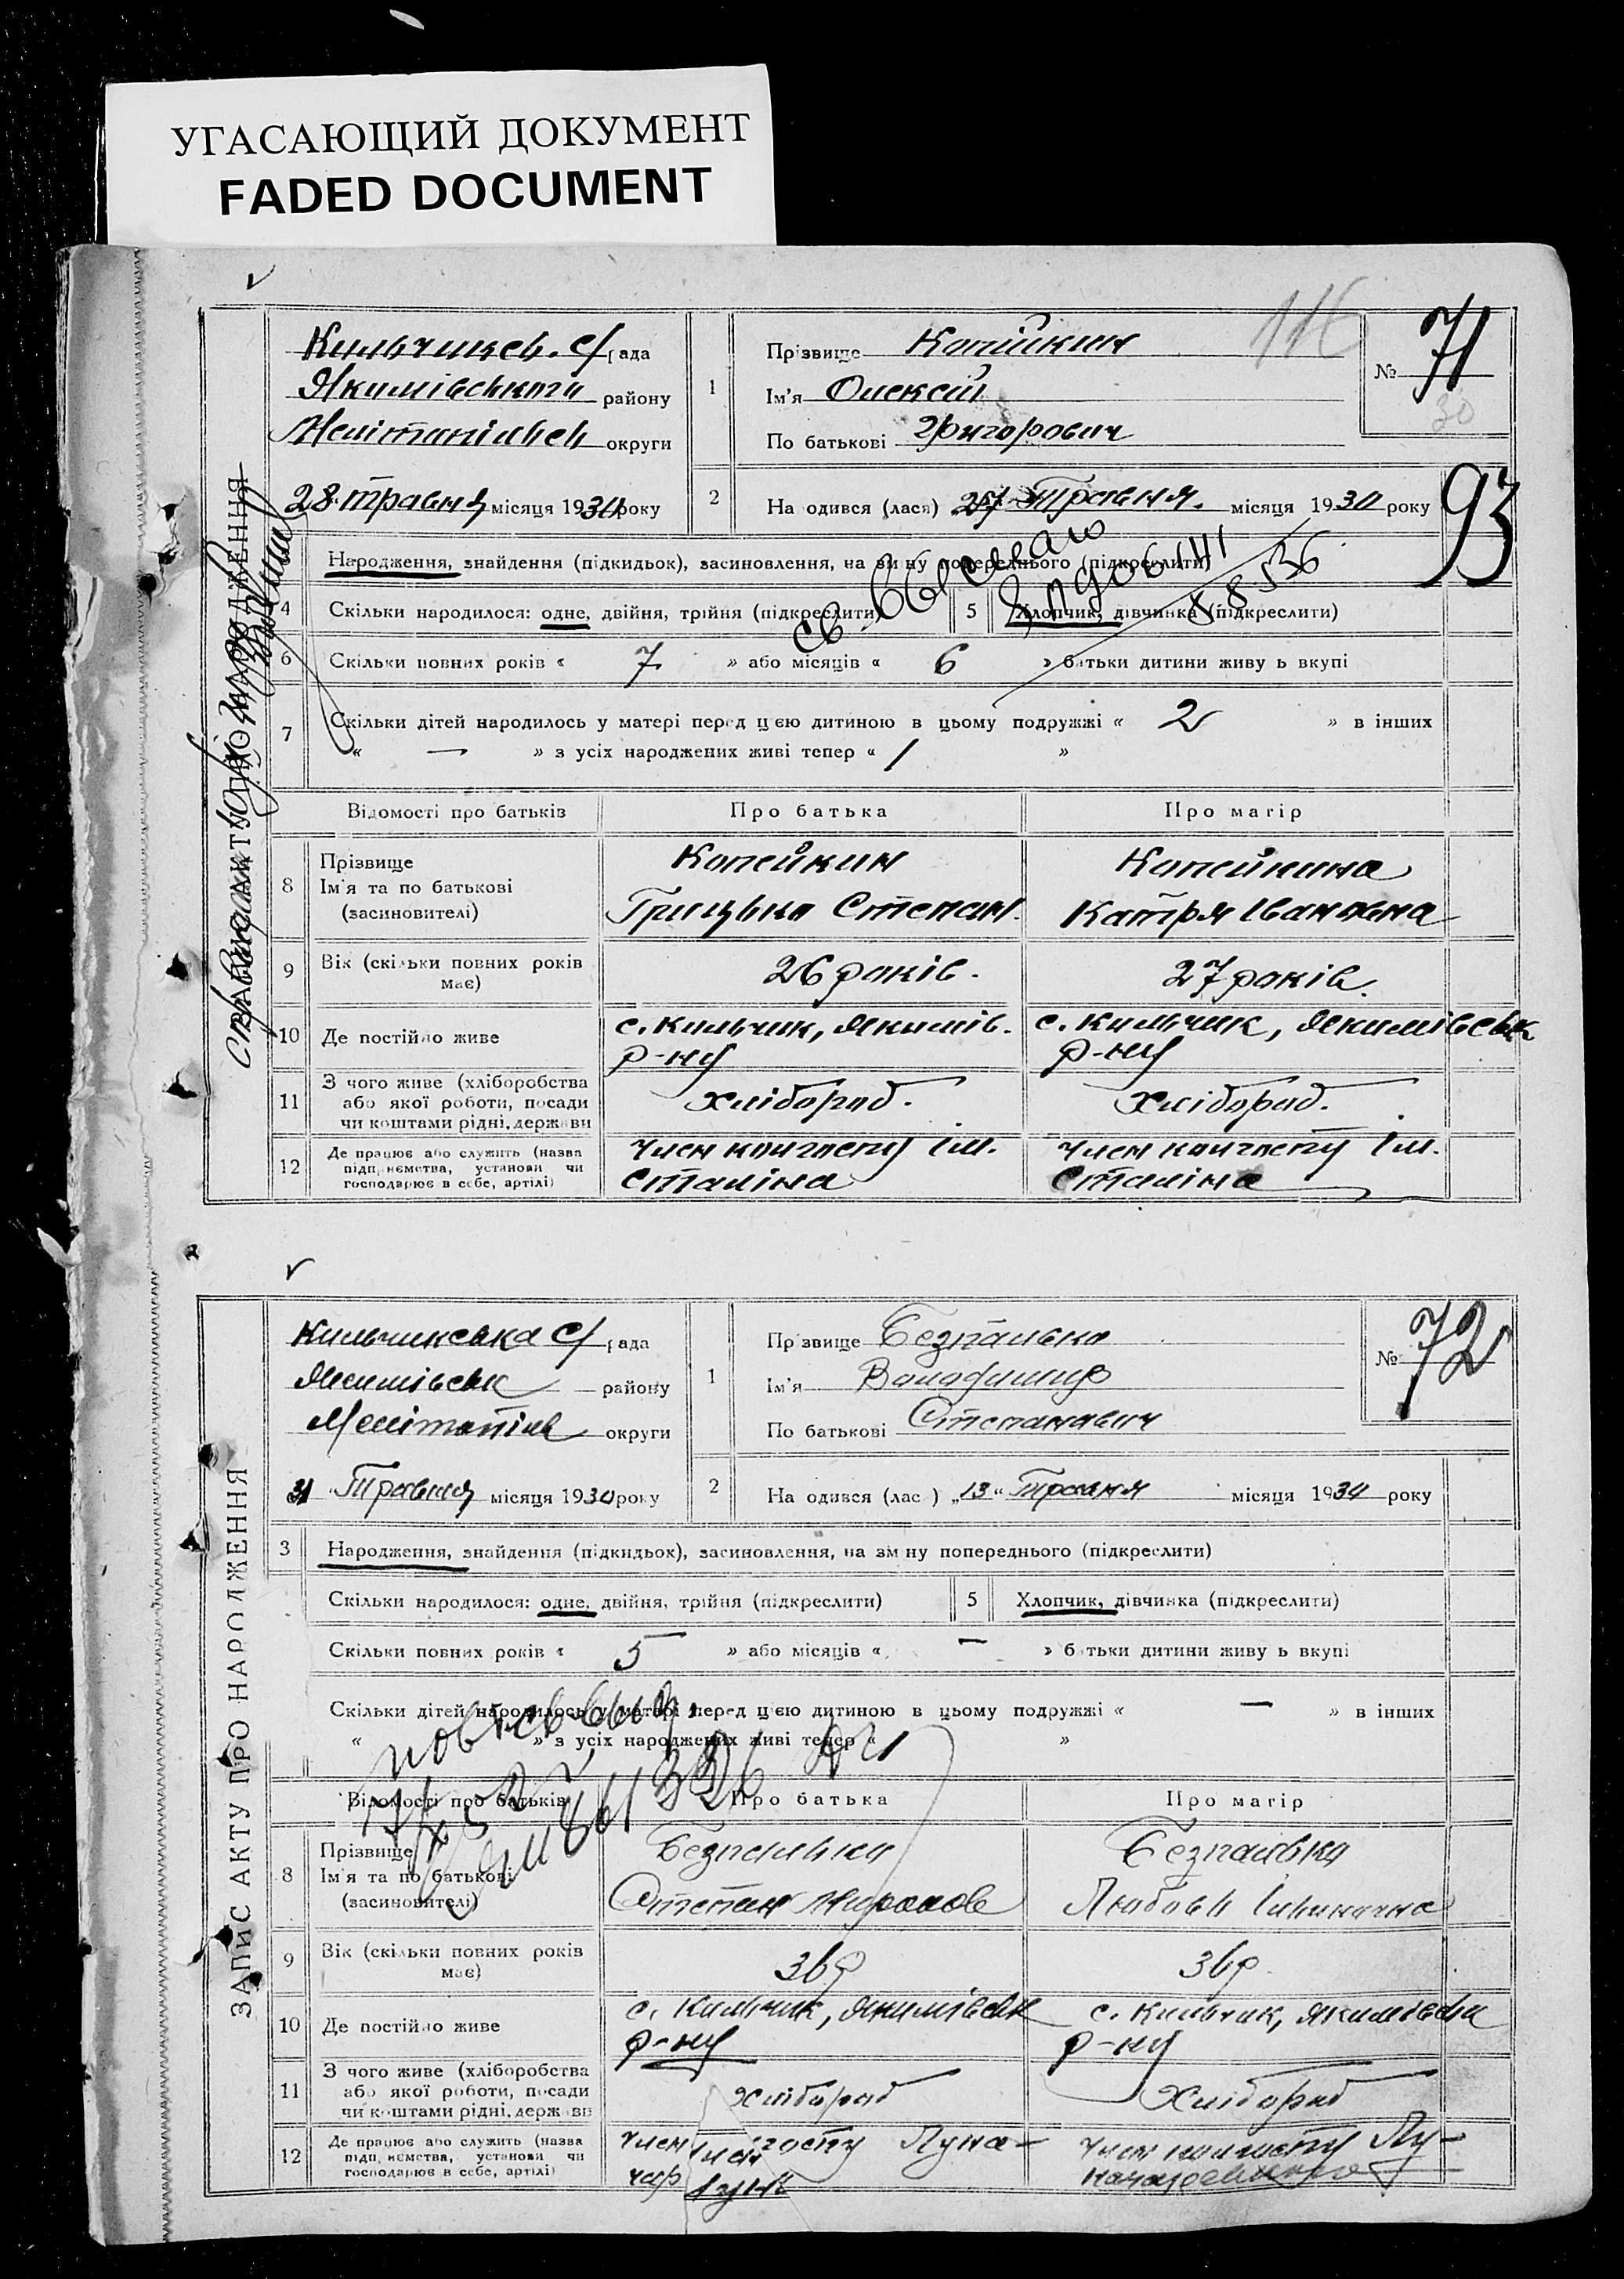 УГАСАЮЩИЙ ДОКУМЕНТ
FADED DOCUMENT
ЗАПИС АКТУ ПРО НАРОДЖЕННЯ
Кильчицев. с/рада
Якимівського району
округи
28 травня місяця 1930 року
1
Прізвище Копійкин
Ім'я Олексій
По батькові Григорович
№ 71
116
30
93
2 На одився (лася) 27 Травня. місяця 1930 року
Народження, знайдення (підкидьок), засиновлення, на зміну попереднього (підкреслити)
4 Скільки народилося: одне, двійня, трійня (підкреслити)
5 Хлопчик, дівчинка (підкреслити)
6 Скільки повних років « 7 » або місяців « 6 » батьки дитини живу ь вкупі
7 Скільки дітей народилось у матері перед цією дитиною в цьому подружжі « 2 » в інших
« — » з усіх народжених живі тепер « 1 »
Відомості про батьків Про батька Про матір
8 Прізвище Копейкин Копейкина
Ім'я та по батькові
(засиновителі) Грицько Степан. Катря Івановна
9 Вік (скільки повних років має) 26 років. 27 років.
10 Де постійно живе с. Кильчик, Якимів. р-ну с. Кильчик, Якимівськ р-ну
11 З чого живе (хліборобства
або якої роботи, посади
чи коштами рідні, держави хлібороб. хлібороб.
12 Де працює або служить (назва
підприємства, установи чи
господарює в себе, артілі)
Член колгоспу ім. Сталіна Член колгоспу ім. Сталіна
ЗАПИС АКТУ ПРО НАРОДЖЕННЯ
Кильчикська с/рада
Якимівськ району
Мелітопіль округи
31 Травня місяця 1930 року
1
Прізвище Безпалько
Ім'я Володимир
По батькові Степанович
№ 72
2 На одився (лас ) „13“ Травня місяця 1930 року
3 Народження, знайдення (підкидьок), засиновлення, на зміну попереднього (підкреслити)
Скільки народилося: одне, двійня, трійня (підкреслити)
5 Хлопчик, дівчинка (підкреслити)
Скільки повних років « 5 » або місяців « — » батьки дитини живу ь вкупі
Скільки дітей народилось у матері перед цією дитиною в цьому подружжі « — » в інших
« » з усіх народжених живі тепер « »
Відомості про батьків Про батька Про матір
8 Прізвище Безпалько Безпалько
Ім'я та по батькові
(засиновителі) Степан Любовь
9 Вік (скільки повних років має) 36 р 36 р.
10 Де постійно живе с. Кильчик, Якимівськ р-ну с. Кильчик, Якимівськ р-ну
11 З чого живе (хліборобства
або якої роботи, посади
чи коштами рідні, держави хлібороб Хлібороб
12 Де працює або служить (назва
підприємства, установи чи
господарює в себе, артілі)
Член Член колгоспу